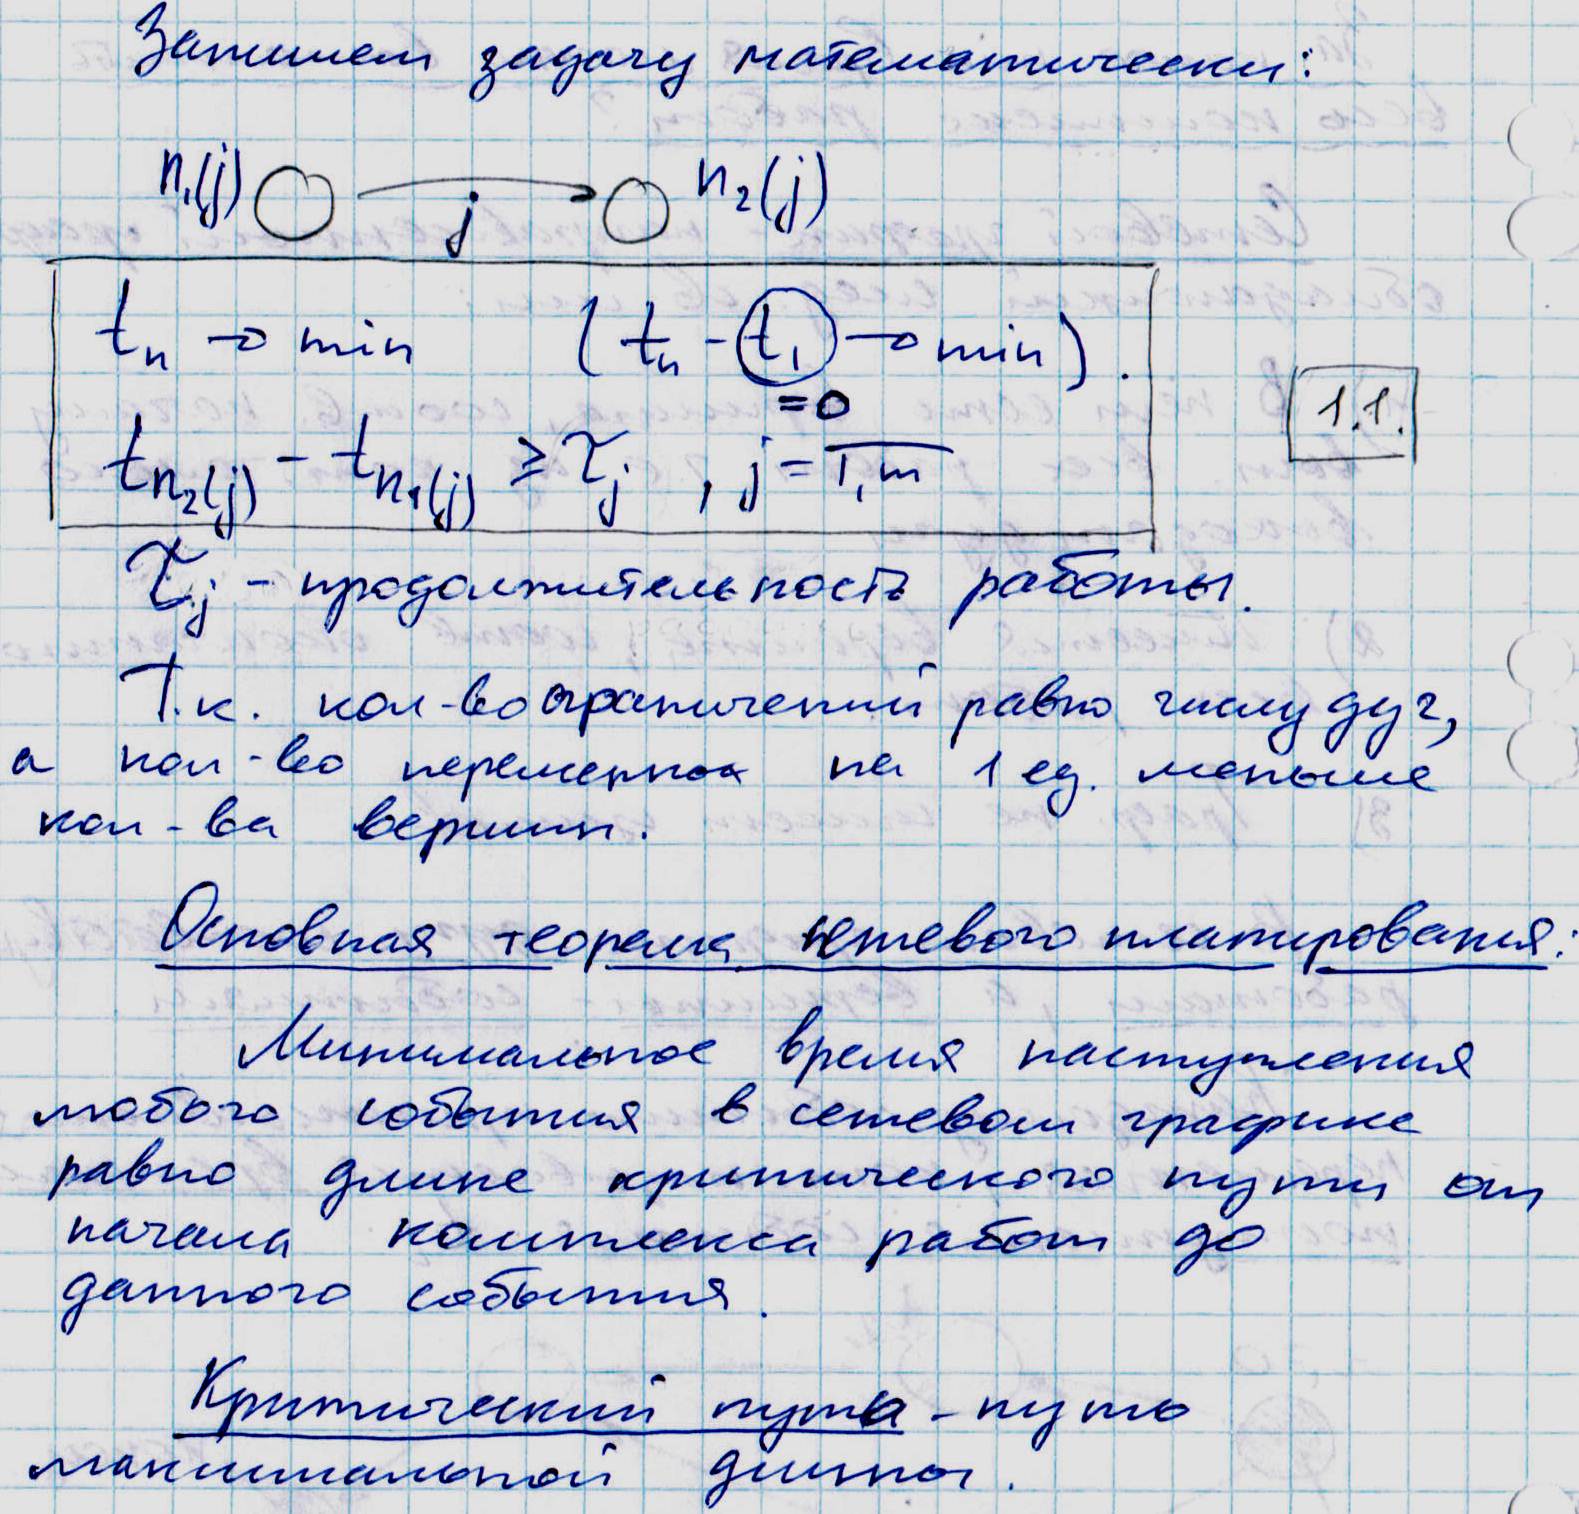 Запишем задачу математически:
n₁(j) j n₂(j)
tₙ → min (tₙ - t₁ → min).
= 0
1.1.
t_{n₂(j)} - t_{n₁(j)} ≥ τ_j , j = \overline{1, m}
τ_j - продолжительность работы.
Т.к. кол-во ограничений равно числу дуг,
а кол-во переменных на 1 ед. меньше
кол-ва вершин.
Основная теорема сетевого планирования:
Минимальное время наступления
любого события в сетевом графике
равно длине критического пути от
начала комплекса работ до
данного события.
Критический путь - путь
максимальной длины.